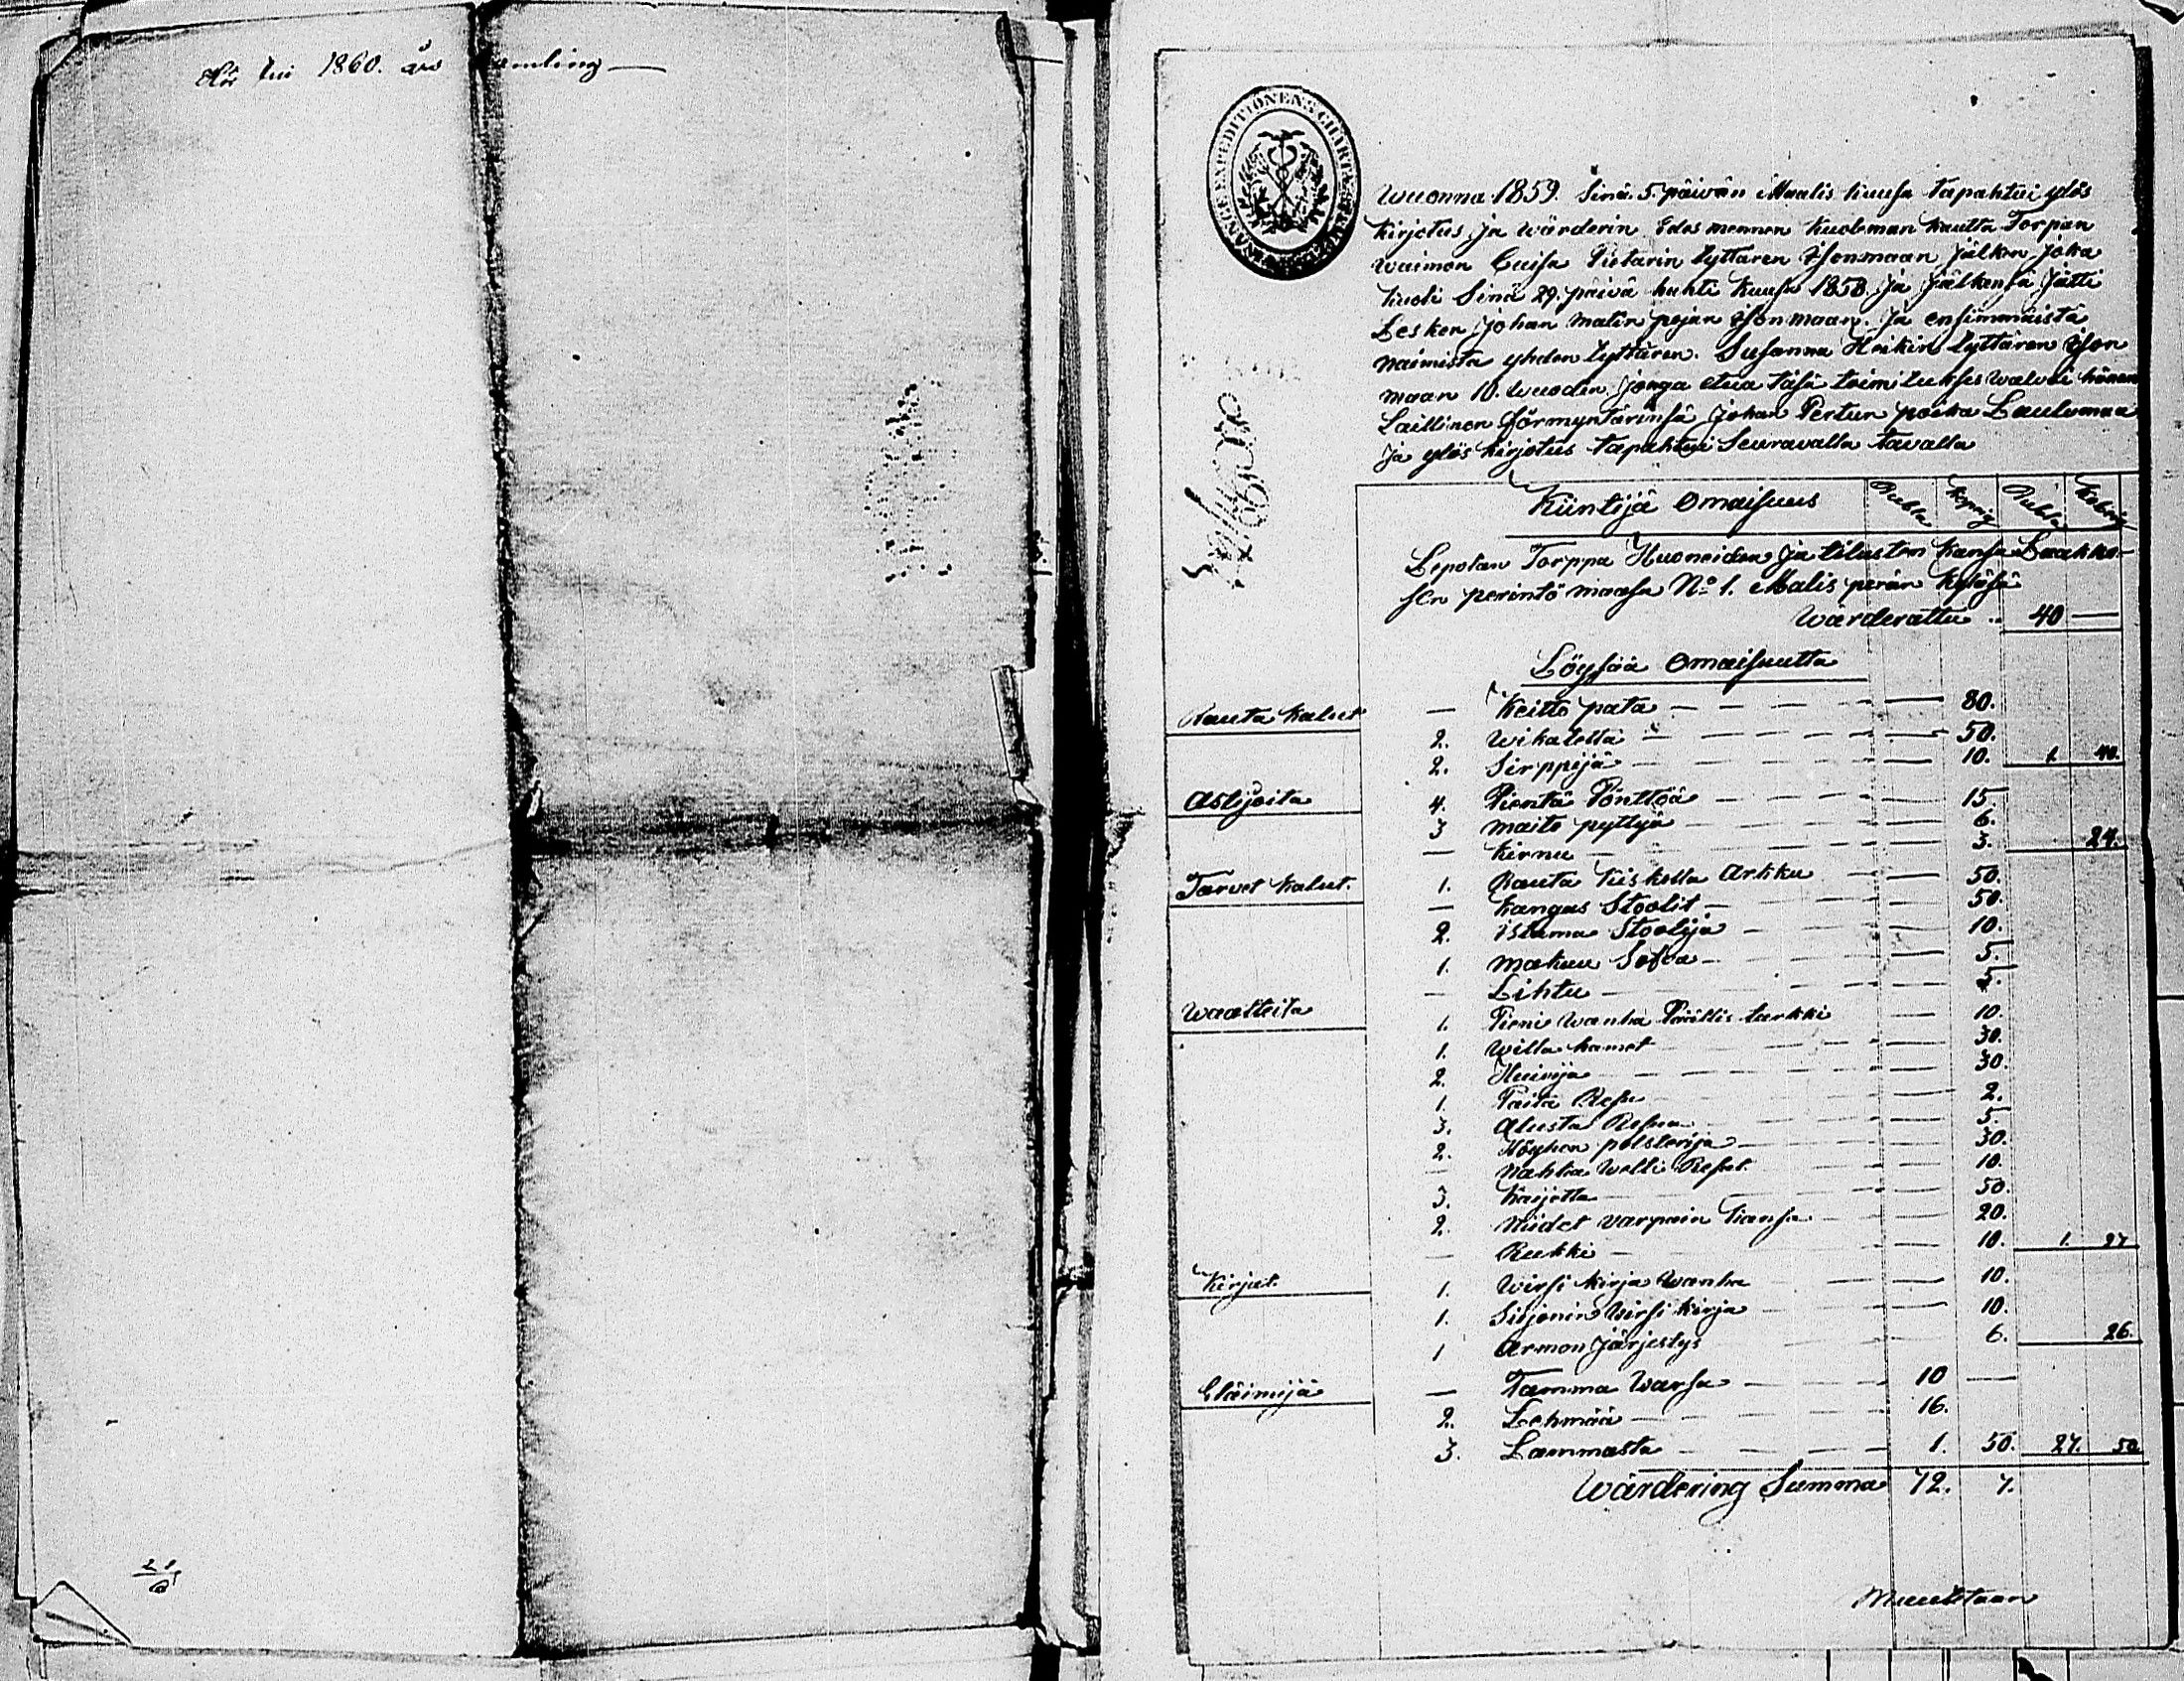 Hör till 1860. års samling
FINANCE EXPEDITIONENS CHARTÆ
Wuonna 1859. Sinä 5. päivän Maalis kuusa tapahtui ylös
kirjotus ja wärderin Edes mennen kuoleman kautta Torpan
waimon Caisa Pietarin tyttären Isonmaan jälken joka
kuoli Sinä 29. päivä huhti kuusa 1858. ja jälkensä jätti
Lesken Johan Matin pojan Isonmaan. ja ensimmäistä
naimista yhden tyttären. Susanna Heikin tyttären Ison
maan 10. wuoden jonga etua täsä toimituksesa walvoi hänen
Laillinen Förmyntärinsä Johan Pertun poika Lauluma
ja ylös kirjotus tapahtui Seuravalla tavalla
Kiintijä Omaisuus Rubla Kopeig Rubla Kopeig
Lepolan Torppa Huoneiden ja tilusten kansa Laakko
sen perintö maasa No 1. Malis perän kyläsä
Wärderattu .. 40 —
Löysää Omaisuutta
Rauta kalut — Keitto pata — 80.
2. Wikatetta — 50.
2. Sirppijä — 10. 1. 40.
Astijoita 4. Pientä Pönttöä — 15.
3 maito pyttyä — 6.
— Kirnu — 3. 24.
Tarvet kalut. 1. Rauta kiskolla Arkku — 50.
— Kangas Stoolit — 50.
2. istuma Stoolija — 10.
1. makuu Sofva — 5.
— Lihtu — 5.
Waatteita 1. Pieni wanha Päällis turkki — 10.
1. Willa hamet — 30.
2. Huivija — 30.
1. Paita Resu — 2.
3. Alusta Resua — 5.
2. Höyhen polsterija — 30.
— Nahka welli Resut — 10.
3. Kaijetta — 50.
2. Niidet varpain kansa — 20.
— Rukki — 10. 1. 27
Kirjat. 1. Wirsi kirja Wanha — 10.
1. Siijonin Wirsi kirja — 10.
1 Armon järjestys 6. 26.
Eläimijä — Tamma Warsa — 10 —
2. Lehmää — 16.
3. Lammasta — 1. 50. 27. 50
Wärdering Summa 72. 7.
Muutetaan